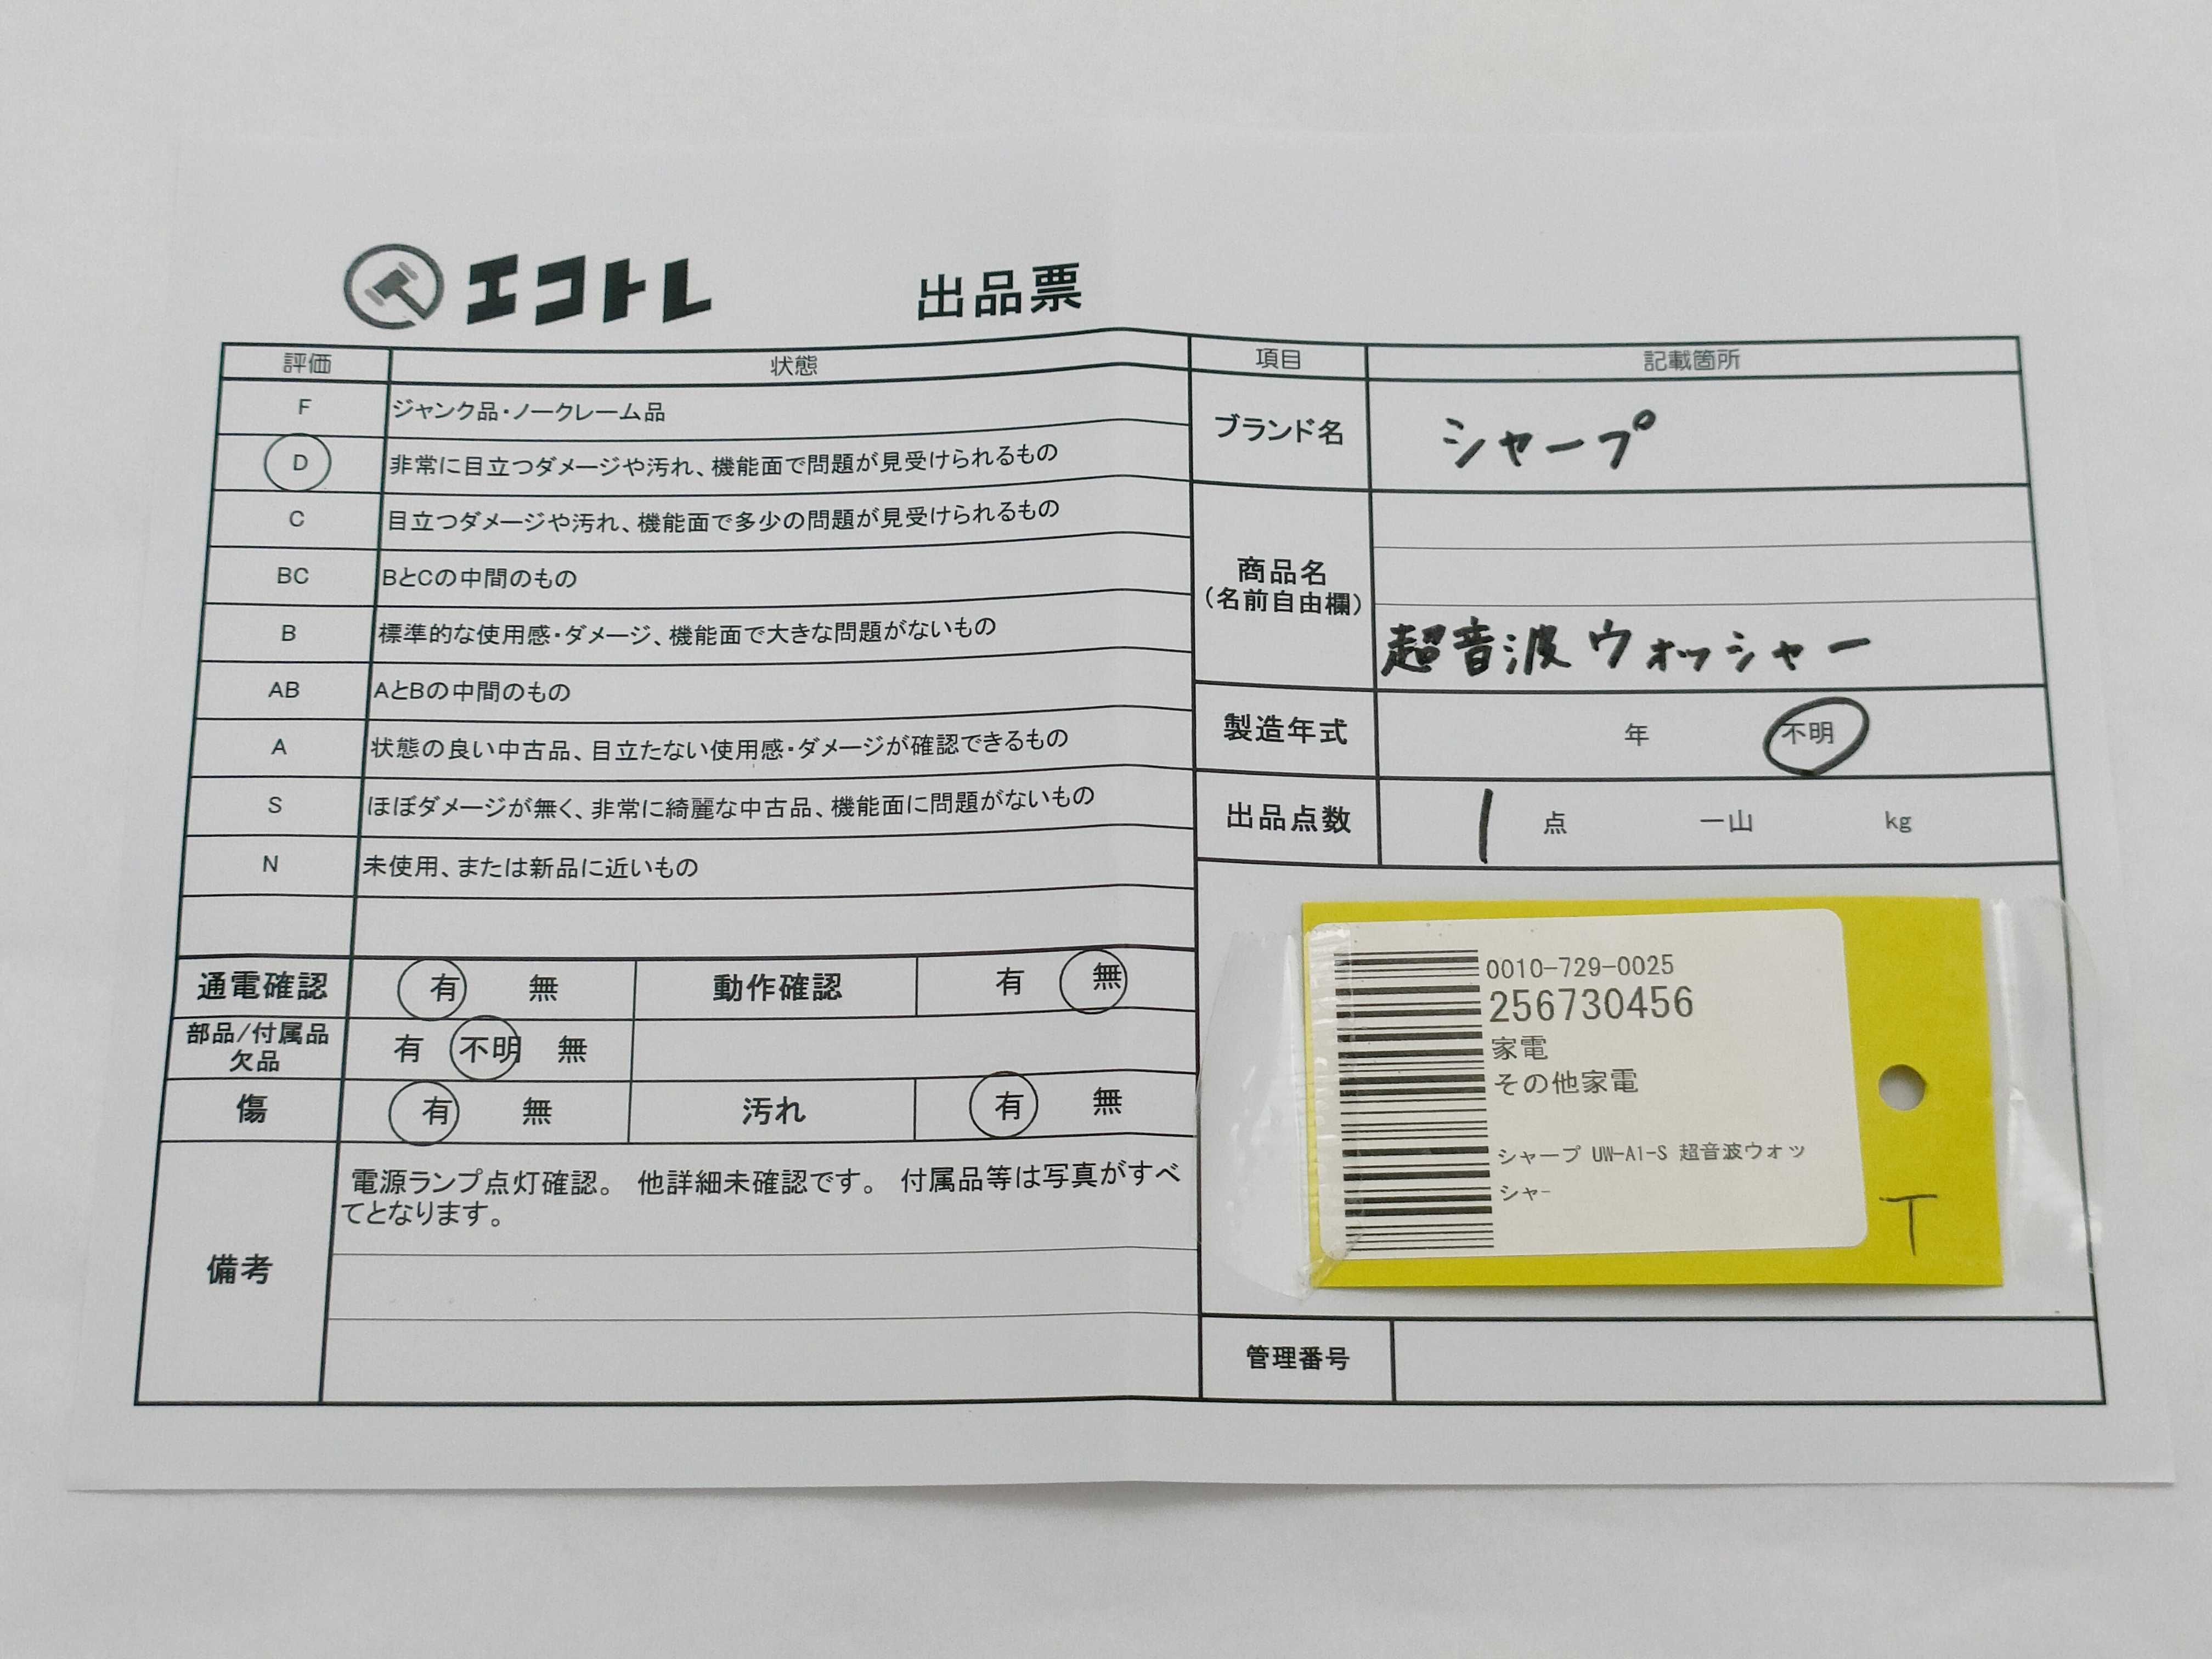 エコトレ 出品票
評価 状態
F ジャンク品・ノークレーム品
D 非常に目立つダメージや汚れ、機能面で問題が見受けられるもの
C 目立つダメージや汚れ、機能面で多少の問題が見受けられるもの
BC BとCの中間のもの
B 標準的な使用感・ダメージ、機能面で大きな問題がないもの
AB AとBの中間のもの
A 状態の良い中古品、目立たない使用感・ダメージが確認できるもの
S ほぼダメージが無く、非常に綺麗な中古品、機能面に問題がないもの
N 未使用、または新品に近いもの
通電確認 有 無 動作確認 有 無
部品/付属品
欠品
有 不明 無
傷 有 無 汚れ 有 無
備考
電源ランプ点灯確認。 他詳細未確認です。 付属品等は写真がすべ
てとなります。
項目 記載箇所
ブランド名 シャープ
商品名
(名前自由欄)
超音波ウォッシャー
製造年式 年 不明
出品点数 1 点 一山 kg
0010-729-0025
256730456
家電
その他家電
シャープ UW-A1-S 超音波ウォッ
シャ-
T
管理番号